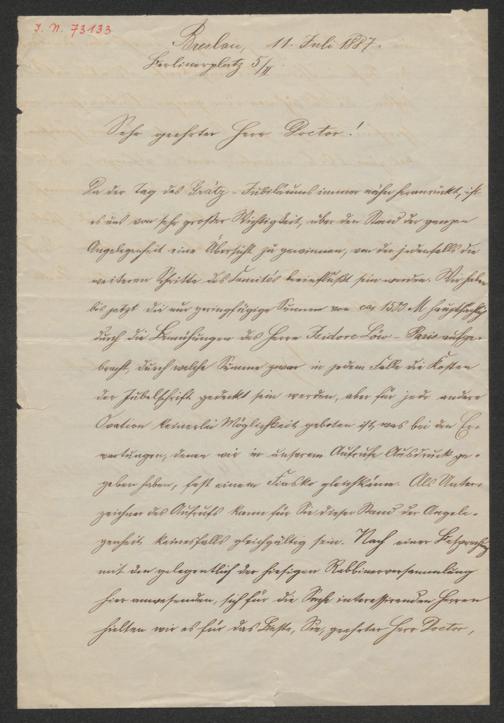 I. N. 73133
Breslau, 11. Juli 1887.
Berlinerplatz 5/II
Sehr geehrter Herr Doctor!
Da der Tag des Grätz-Jubiläums immer näher heranrückt, ist
es uns von sehr großer Wichtigkeit, über den Stand der ganzen
Angelegenheit eine Übersicht zu gewinnen, von der jedenfalls die
weiteren Schritte des Comités beeinflußt sein werden. Wir haben
bis jetzt die nur geringfügige Summe von ca 1500 M hauptsächlich
durch die Bemühungen des Herrn Isidore Löw - Paris aufge-
bracht, durch welche Summe zwar in jedem Falle die Kosten
der Jubelschrift gedeckt sein werden, aber für jede andere
Ovation keinerlei Möglichkeit geboten ist, was bei den Er-
wartungen, denen wir in unserem Aufrufe Ausdruck ge-
geben haben, fast einem Fiasko gleichkäme. Als Unter-
zeichner des Aufrufs kann für Sie dieser Stand der Angele-
genheit keinesfalls gleichgültig sein. Nach einer Besprechung
mit den gelegentlich der hiesigen Rabbinerversammlung
hier anwesenden, sich für die Sache interessirenden Herren
hielten wir es für das Beste, Sie, geehrter Herr Doctor,